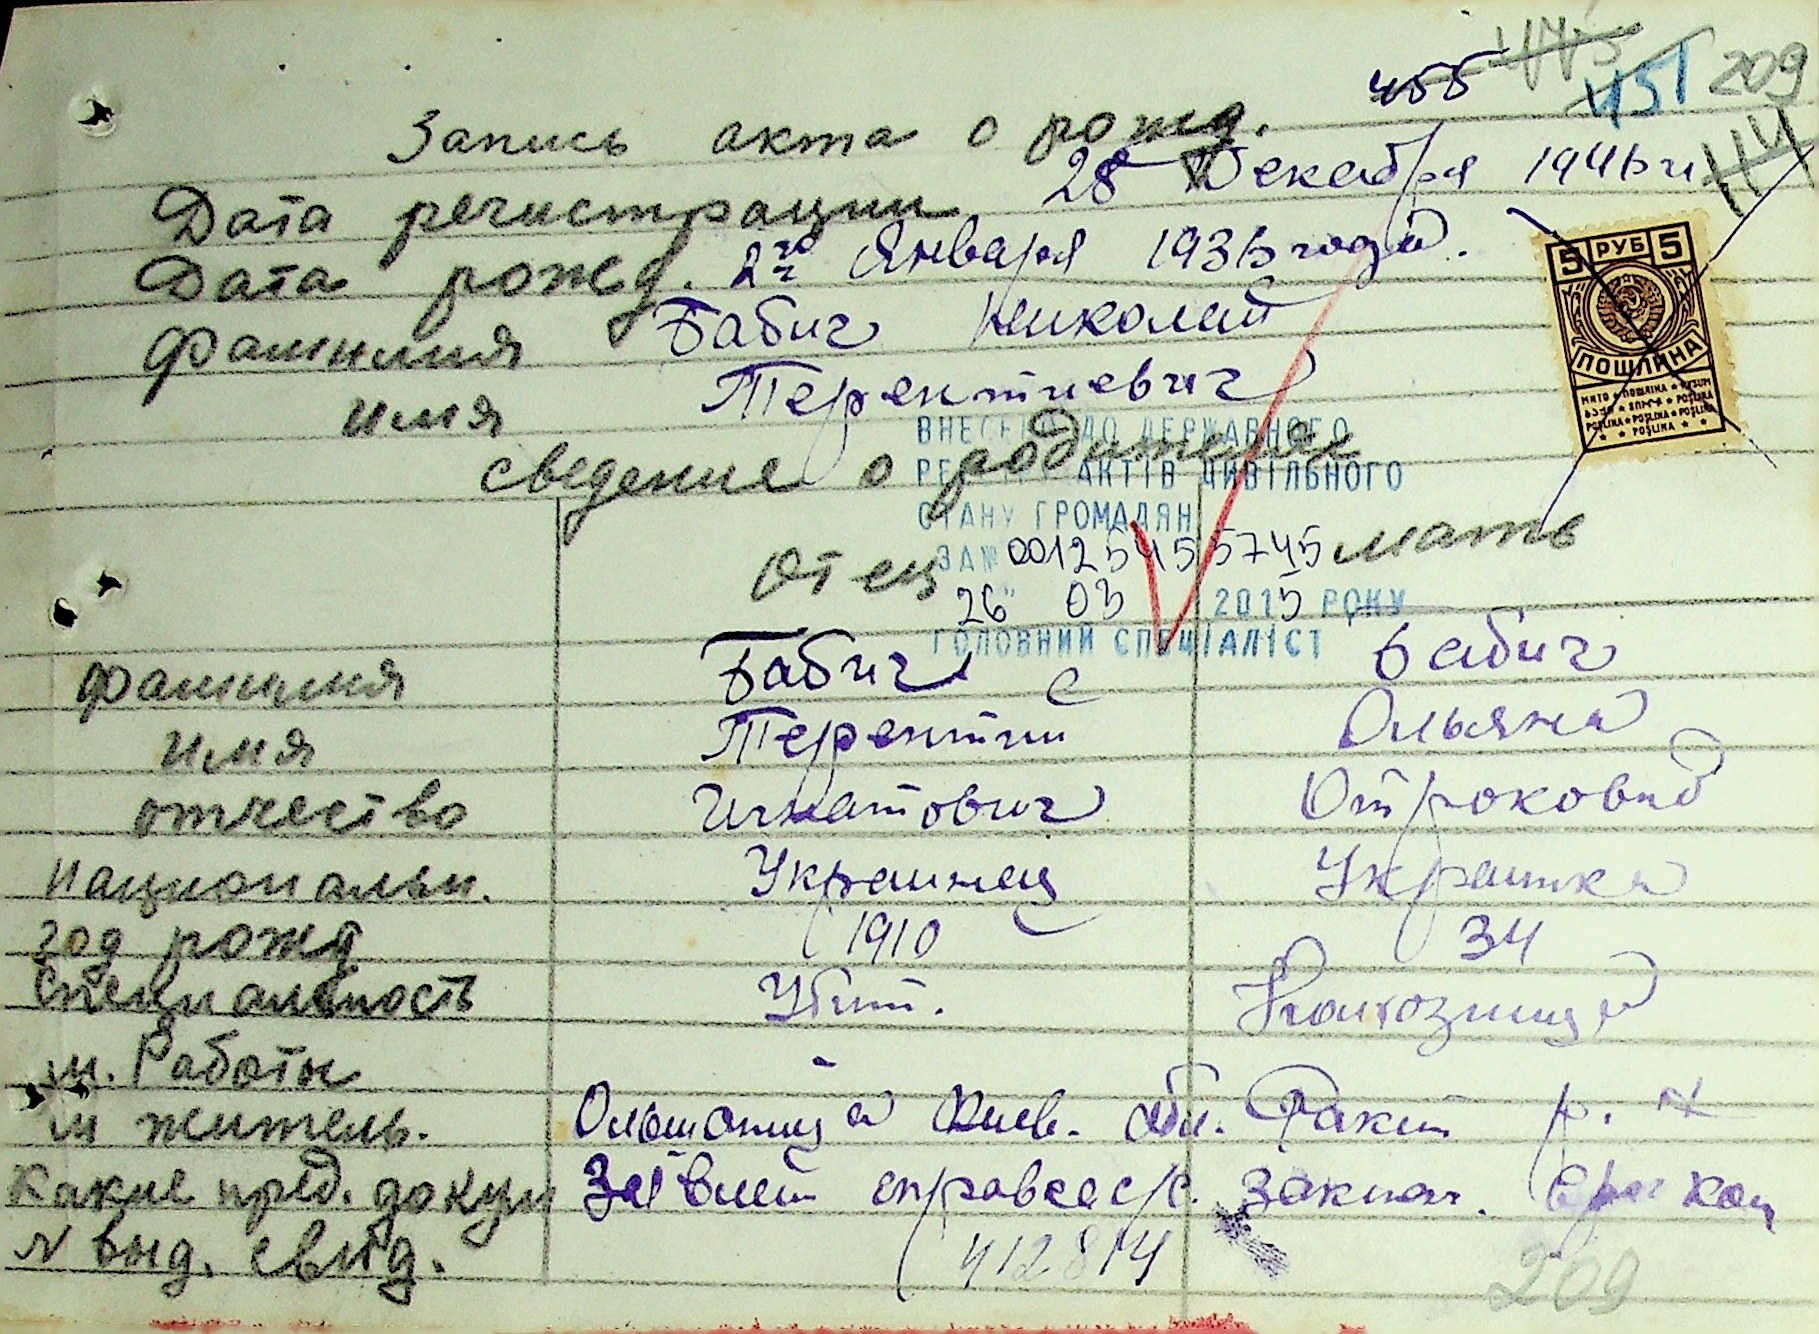 455 473 451 209
Запись акта о рожд.
114
Дата регистрации 28 Декабря 1946 г
Дата рожд. 2го Января 1936 года.
Фамилия Бабич Николай
имя Терентиевич
5 РУБ 5
ПОШЛИНА
сведение о родителях
ВНЕСЕНО ДО ДЕРЖАВНОГО
РЕЄСТРУ АКТІВ ЦИВІЛЬНОГО
СТАНУ ГРОМАДЯН
ЗА № 00125455745
"26" 03 2015 РОКУ
ГОЛОВНИЙ СПЕЦІАЛІСТ
Отец мать
Фамилия Бабич Бабич
имя Терентий Ольяна
отчество Игнатович
Национальн. Украинец Украинка
год рожд 1910 34
Специальность Убит. Колхозница
м. Работы
м житель. Ольшаница Киев. обл. Ракит р. н
Какие пред. докум Заявлен справка с/с. заключ.
N выд. свид. 412814
209